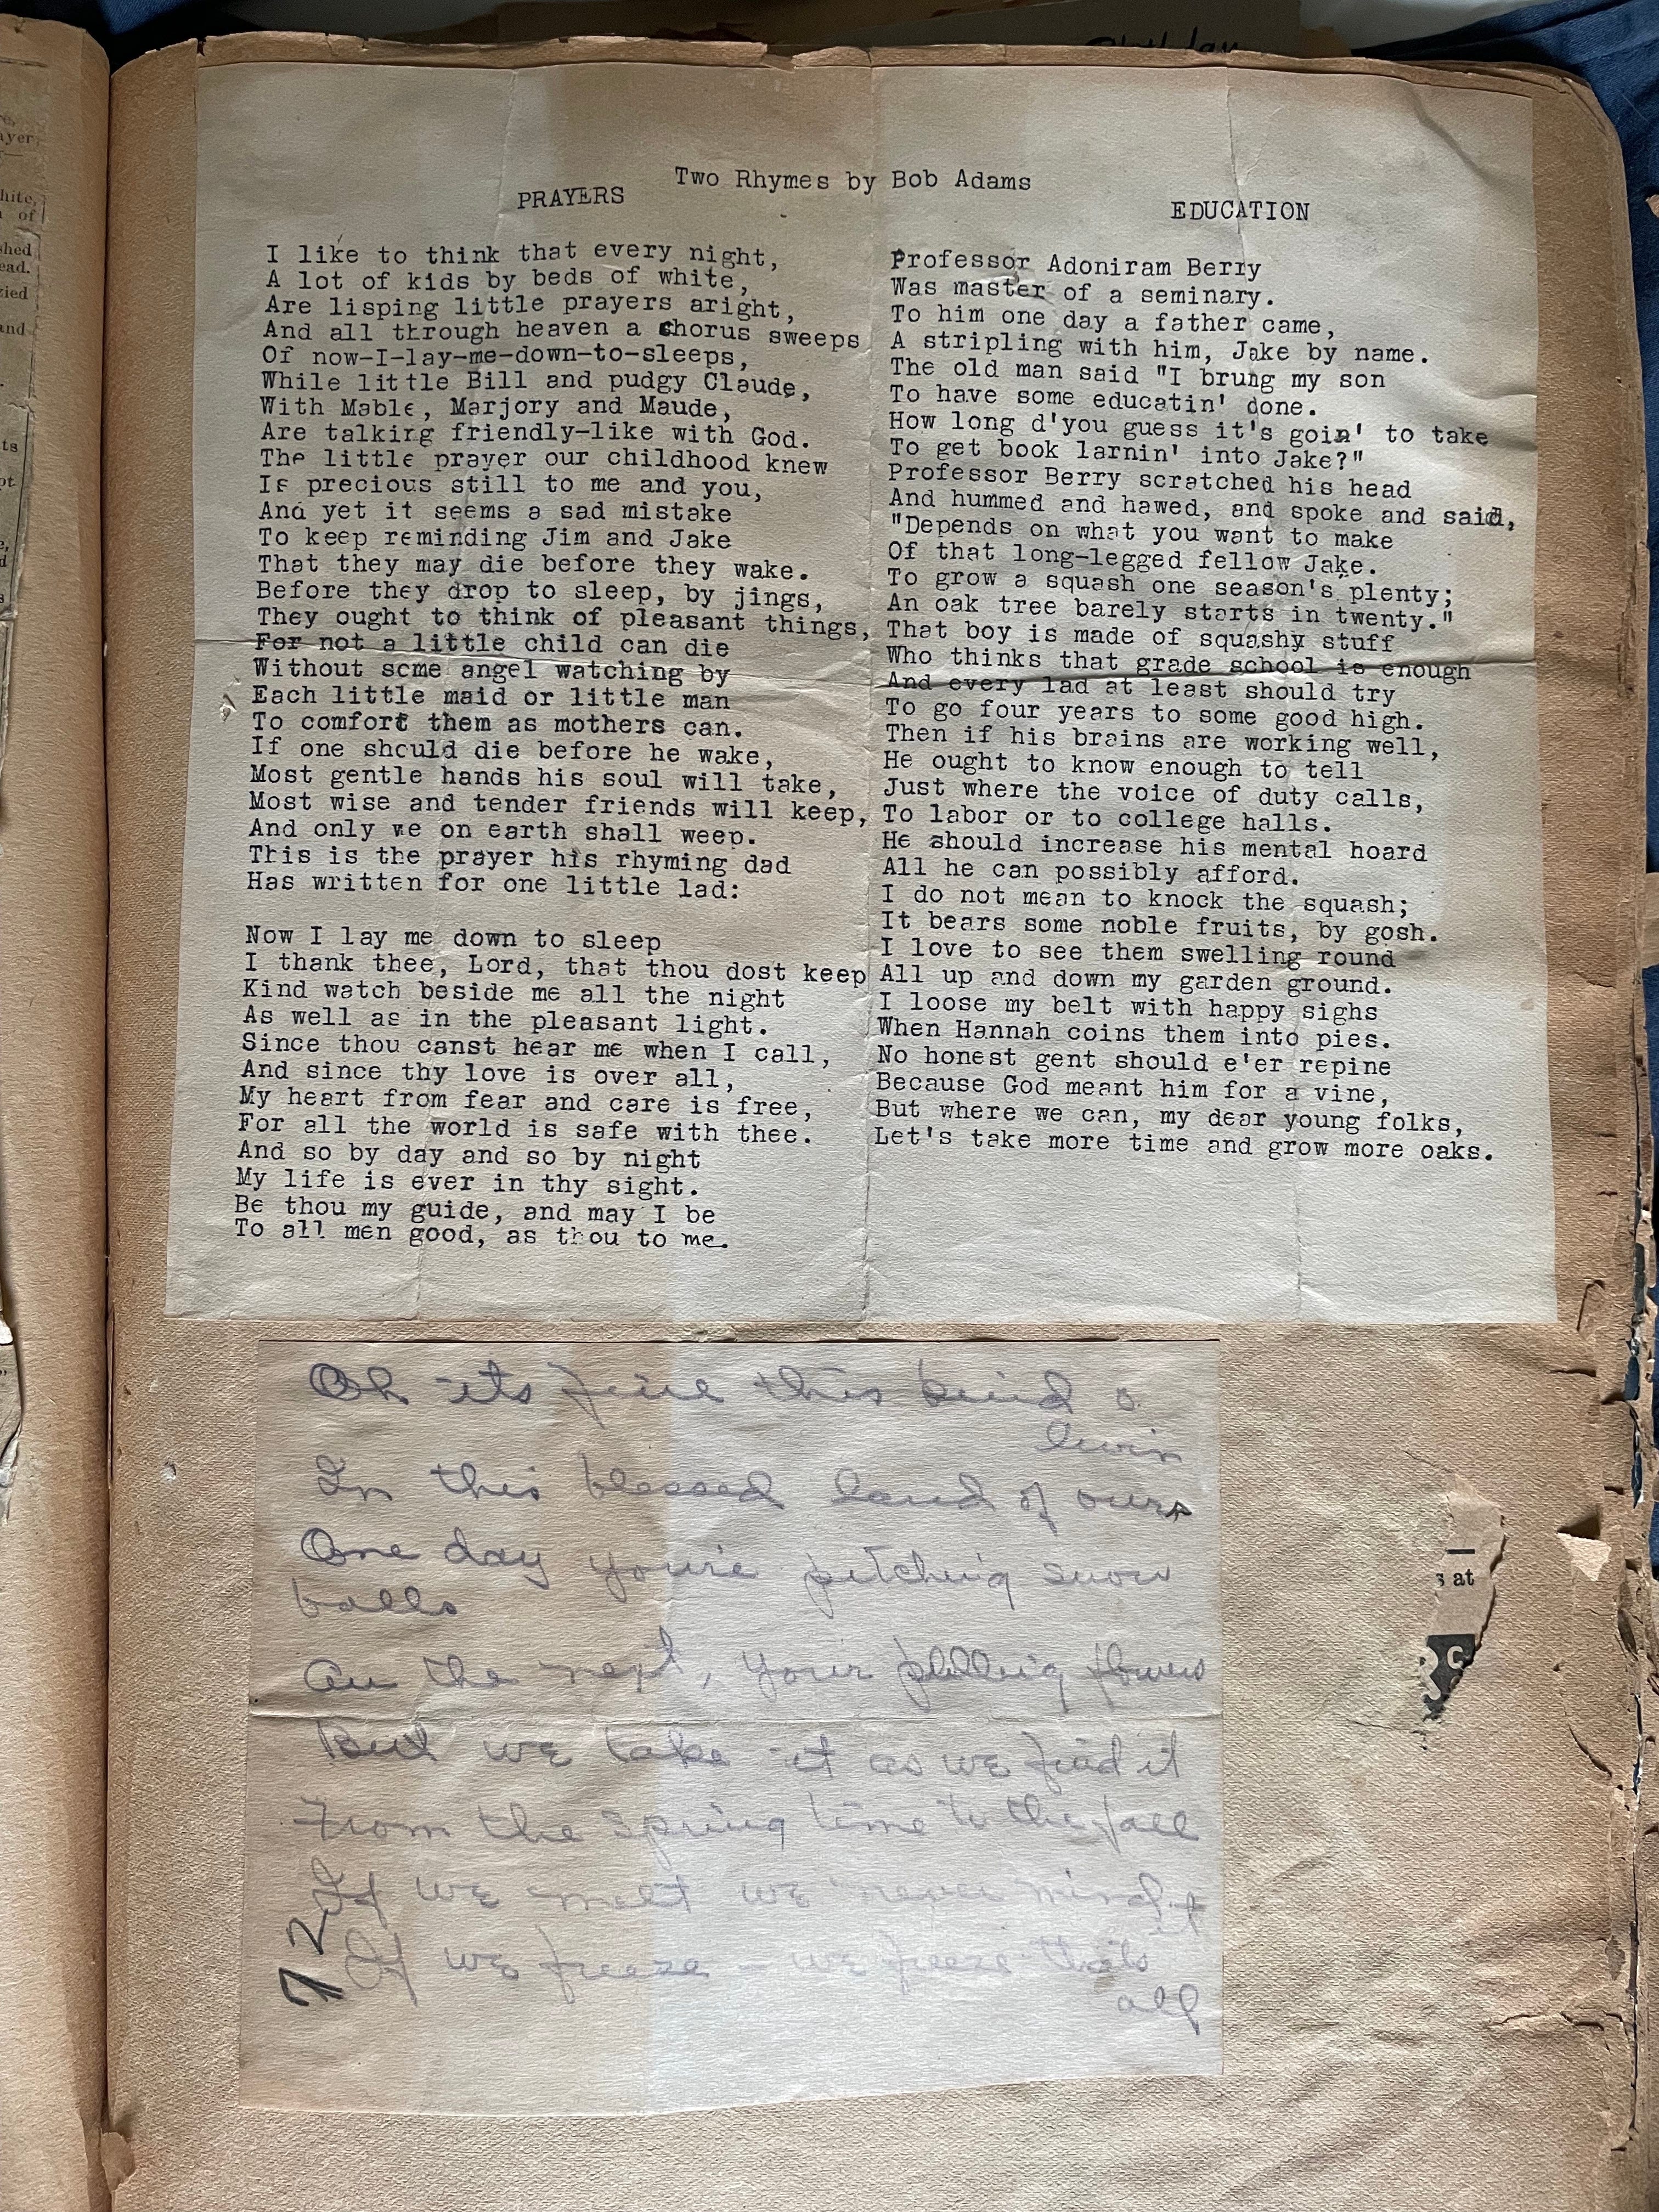 ayer
hite,
of
shed
ead.
zied
and
ts
ot
Two Rhymes by Bob Adams
PRAYERS
I like to think that every night,
A lot of kids by beds of white,
Are lisping little prayers aright,
And all through heaven a chorus sweeps
Of now-I-lay-me-down-to-sleeps,
While little Bill and pudgy Claude,
With Mable, Marjory and Maude,
Are talking friendly-like with God.
The little prayer our childhood knew
Is precious still to me and you,
And yet it seems a sad mistake
To keep reminding Jim and Jake
That they may die before they wake.
Before they drop to sleep, by jings,
They ought to think of pleasant things,
For not a little child can die
Without some angel watching by
Each little maid or little man
To comfort them as mothers can.
If one should die before he wake,
Most gentle hands his soul will take,
Most wise and tender friends will keep,
And only we on earth shall weep.
This is the prayer his rhyming dad
Has written for one little lad:
Now I lay me down to sleep
I thank thee, Lord, that thou dost keep
Kind watch beside me all the night
As well as in the pleasant light.
Since thou canst hear me when I call,
And since thy love is over all,
My heart from fear and care is free,
For all the world is safe with thee.
And so by day and so by night
My life is ever in thy sight.
Be thou my guide, and may I be
To all men good, as thou to me.
EDUCATION
Professor Adoniram Berry
Was master of a seminary.
To him one day a father came,
A stripling with him, Jake by name.
The old man said "I brung my son
To have some educatin' done.
How long d'you guess it's goin' to take
To get book larnin' into Jake?"
Professor Berry scratched his head
And hummed and hawed, and spoke and said,
"Depends on what you want to make
Of that long-legged fellow Jake.
To grow a squash one season's plenty;
An oak tree barely starts in twenty."
That boy is made of squashy stuff
Who thinks that grade school is enough
And every lad at least should try
To go four years to some good high.
Then if his brains are working well,
He ought to know enough to tell
Just where the voice of duty calls,
To labor or to college halls.
He should increase his mental hoard
All he can possibly afford.
I do not mean to knock the squash;
It bears some noble fruits, by gosh.
I love to see them swelling round
All up and down my garden ground.
I loose my belt with happy sighs
When Hannah coins them into pies.
No honest gent should e'er repine
Because God meant him for a vine,
But where we can, my dear young folks,
Let's take more time and grow more oaks.
Oh its fine this kind o
livin
In this blessed land of ours
One day you're pitching snow
balls
An the next, your pulling flowers
But we take it as we find it
From the Spring time to the fall
If we melt we never mind it
If we freeze - we freeze thats
all
72
s at
c